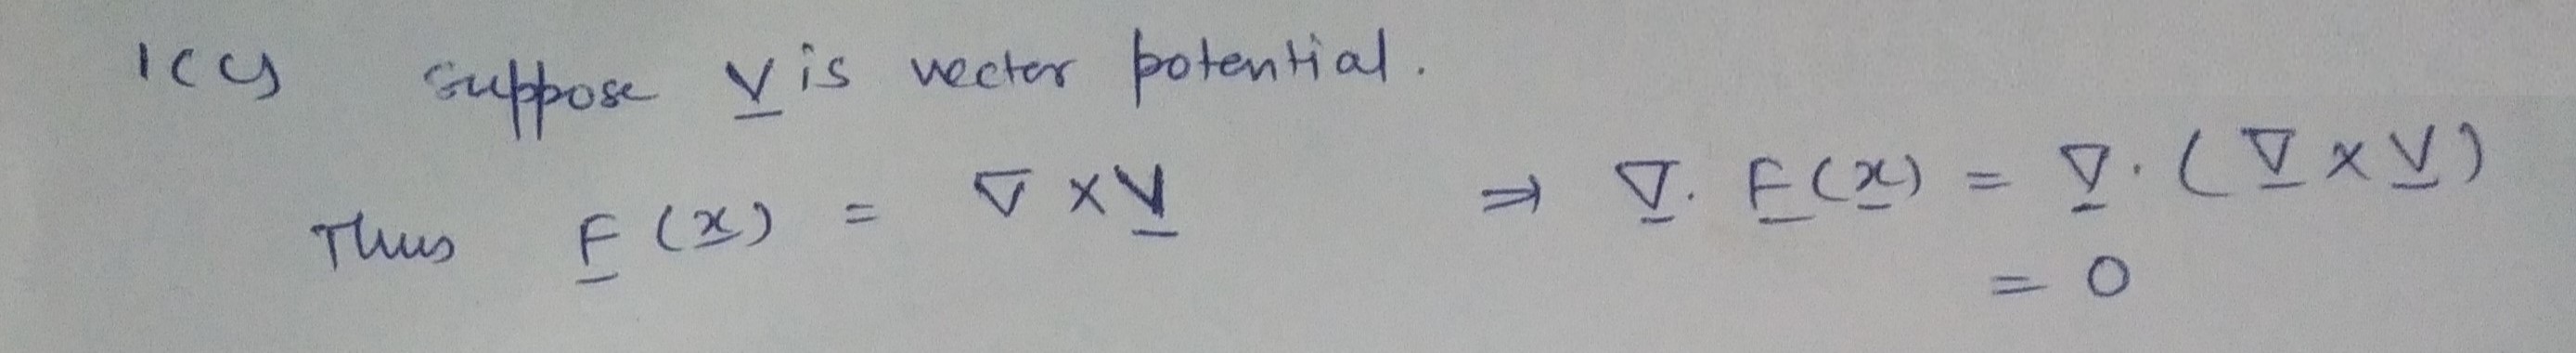 1(c) suppose V is vector potential.
Thus F(x) = ∇ × V ⇒ ∇. F(x) = ∇. (∇ × V)
= 0